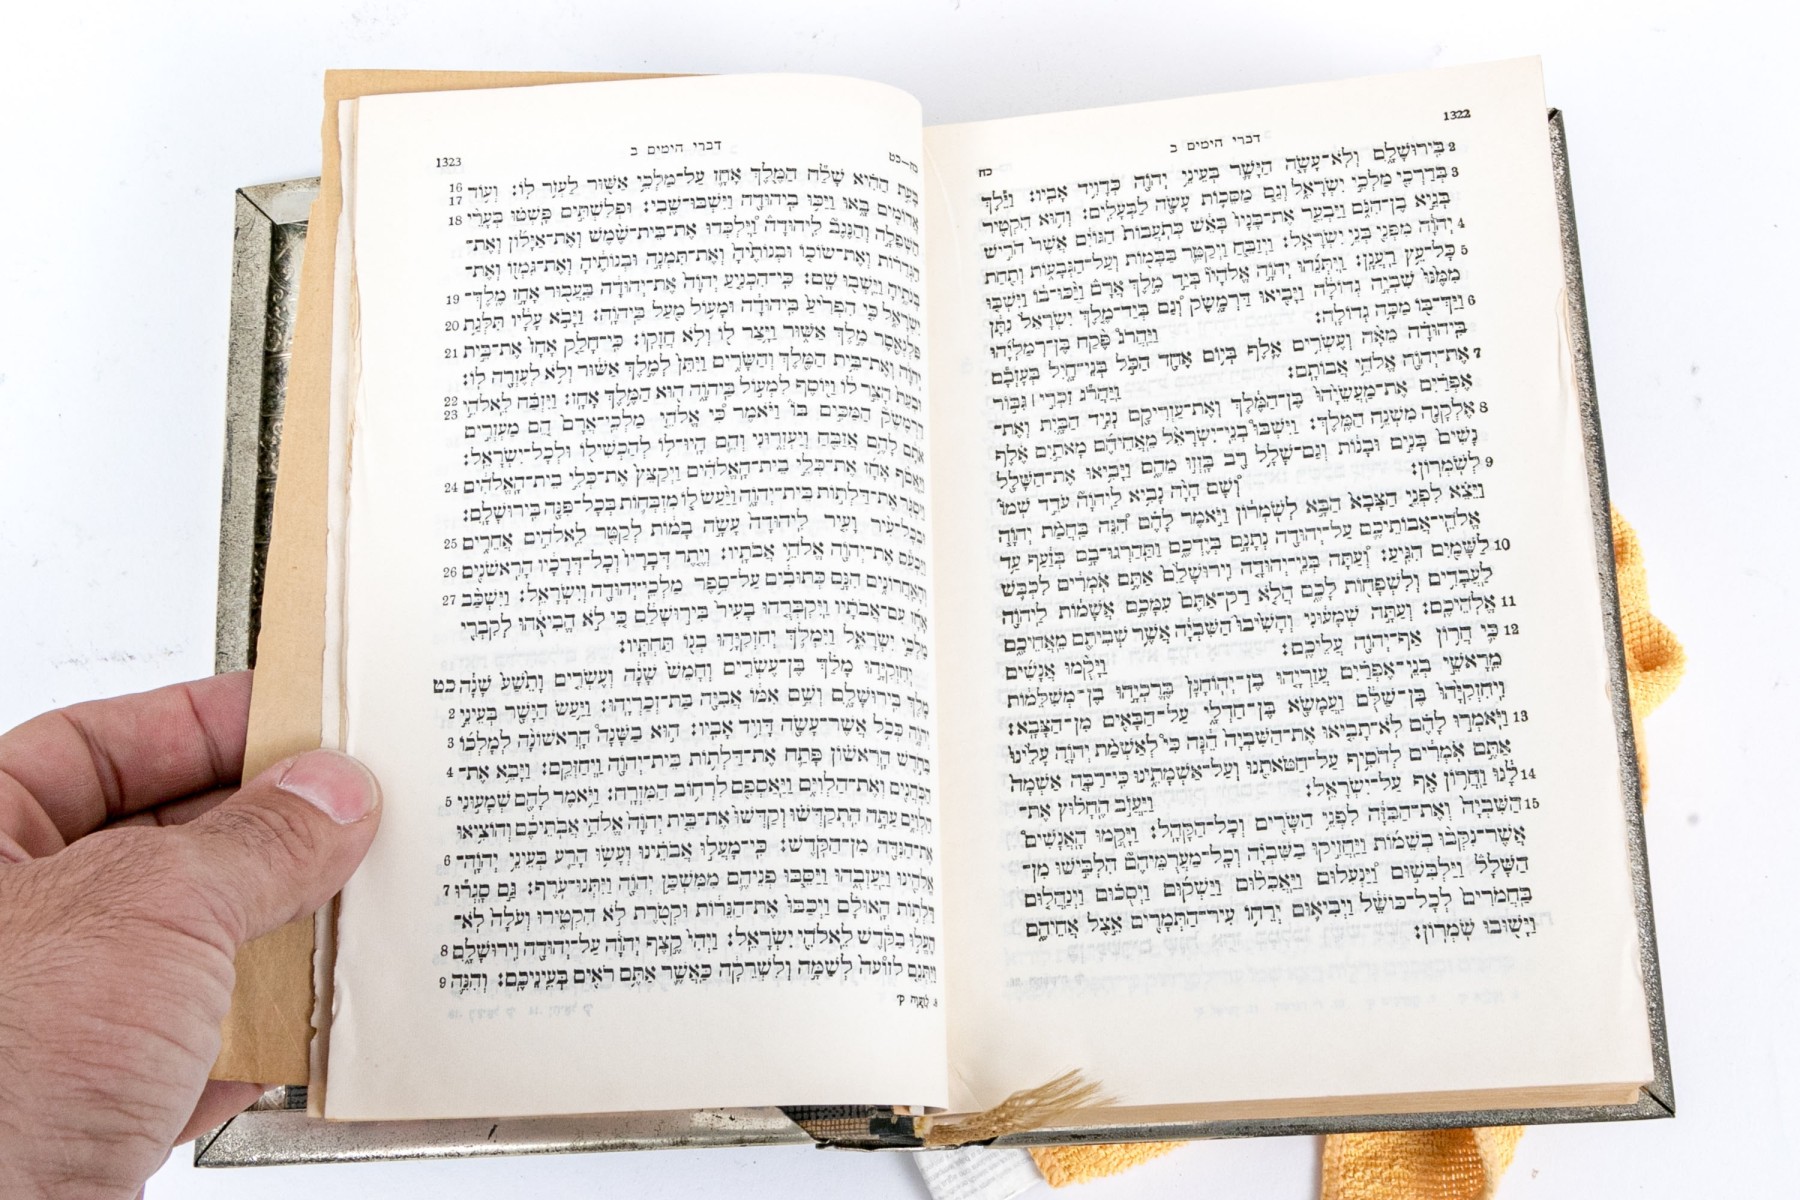 1322
דברי הימים ב
כח
2 בִּירוּשָׁלָ͏ִם וְלֹא־עָשָׂה הַיָּשָׁר בְּעֵינֵי יְהוָה כְּדָוִיד אָבִיו: וַיֵּלֶךְ
3 בְּדַרְכֵי מַלְכֵי יִשְׂרָאֵל וְגַם מַסֵּכוֹת עָשָׂה לַבְּעָלִים: וְהוּא הִקְטִיר
בְּגֵיא בֶן־הִנֹּם וַיַּבְעֵר אֶת־בָּנָיו בָּאֵשׁ כְּתֹעֲבוֹת הַגּוֹיִם אֲשֶׁר הֹרִישׁ
4 יְהוָה מִפְּנֵי בְּנֵי יִשְׂרָאֵל: וַיְזַבֵּחַ וַיְקַטֵּר בַּבָּמוֹת וְעַל־הַגְּבָעוֹת וְתַחַת
5 כָּל־עֵץ רַעֲנָן: וַיִּתְּנֵהוּ יְהוָה אֱלֹהָיו בְּיַד מֶלֶךְ אֲרָם וַיַּכּוּ־בוֹ וַיִּשְׁבּוּ
מִמֶּנּוּ שִׁבְיָה גְדוֹלָה וַיָּבִיאוּ דַּרְמָשֶׂק וְגַם בְּיַד־מֶלֶךְ יִשְׂרָאֵל נִתָּן
6 וַיַּךְ־בּוֹ מַכָּה גְדוֹלָה: וַיַּהֲרֹג פֶּקַח בֶּן־רְמַלְיָהוּ
בִּיהוּדָה מֵאָה וְעֶשְׂרִים אֶלֶף בְּיוֹם אֶחָד הַכֹּל בְּנֵי־חָיִל בְּעָזְבָם
7 אֶת־יְהוָה אֱלֹהֵי אֲבוֹתָם: וַיַּהֲרֹג זִכְרִי ׀ גִּבּוֹר
אֶפְרַיִם אֶת־מַעֲשֵׂיָהוּ בֶּן־הַמֶּלֶךְ וְאֶת־עַזְרִיקָם נְגִיד הַבָּיִת וְאֶת־
8 אֶלְקָנָה מִשְׁנֵה הַמֶּלֶךְ: וַיִּשְׁבּוּ בְנֵי־יִשְׂרָאֵל מֵאֲחֵיהֶם מָאתַיִם אֶלֶף
נָשִׁים בָּנִים וּבָנוֹת וְגַם־שָׁלָל רָב בָּזְזוּ מֵהֶם וַיָּבִיאוּ אֶת־הַשָּׁלָל
9 לְשֹׁמְרוֹן: וְשָׁם הָיָה נָבִיא לַיהוָה עֹדֵד שְׁמוֹ
וַיֵּצֵא לִפְנֵי הַצָּבָא הַבָּא לְשֹׁמְרוֹן וַיֹּאמֶר לָהֶם הִנֵּה בַּחֲמַת יְהוָה
אֱלֹהֵי־אֲבוֹתֵיכֶם עַל־יְהוּדָה נְתָנָם בְּיֶדְכֶם וַתַּהַרְגוּ־בָם בְּזַעַף עַד
10 לַשָּׁמַיִם הִגִּיעַ: וְעַתָּה בְּנֵי־יְהוּדָה וִירוּשָׁלַ͏ִם אַתֶּם אֹמְרִים לִכְבֹּשׁ
לַעֲבָדִים וְלִשְׁפָחוֹת לָכֶם הֲלֹא רַק־אַתֶּם עִמָּכֶם אֲשָׁמוֹת לַיהוָה
11 אֱלֹהֵיכֶם: וְעַתָּה שְׁמָעוּנִי וְהָשִׁיבוּ הַשִּׁבְיָה אֲשֶׁר שְׁבִיתֶם מֵאֲחֵיכֶם
12 כִּי חֲרוֹן אַף־יְהוָה עֲלֵיכֶם: וַיָּקֻמוּ אֲנָשִׁים
מֵרָאשֵׁי בְנֵי־אֶפְרַיִם עֲזַרְיָהוּ בֶן־יְהוֹחָנָן בֶּרֶכְיָהוּ בֶן־מְשִׁלֵּמוֹת
וִיחִזְקִיָּהוּ בֶּן־שַׁלֻּם וַעֲמָשָׂא בֶּן־חַדְלָי עַל־הַבָּאִים מִן־הַצָּבָא:
13 וַיֹּאמְרוּ לָהֶם לֹא־תָבִיאוּ אֶת־הַשִּׁבְיָה הֵנָּה כִּי לְאַשְׁמַת יְהוָה עָלֵינוּ
אַתֶּם אֹמְרִים לְהֹסִיף עַל־חַטֹּאתֵנוּ וְעַל־אַשְׁמָתֵינוּ כִּי־רַבָּה אַשְׁמָה
14 לָּנוּ וַחֲרוֹן אָף עַל־יִשְׂרָאֵל: וַיַּעֲזֹב הֶחָלוּץ אֶת־
15 הַשִּׁבְיָה וְאֶת־הַבִּזָּה לִפְנֵי הַשָּׂרִים וְכָל־הַקָּהָל: וַיָּקֻמוּ הָאֲנָשִׁים
אֲשֶׁר־נִקְּבוּ בְשֵׁמוֹת וַיַּחֲזִיקוּ בַשִּׁבְיָה וְכָל־מַעֲרֻמֵּיהֶם הִלְבִּישׁוּ מִן־
הַשָּׁלָל וַיַּלְבִּשׁוּם וַיַּנְעִלוּם וַיַּאֲכִלוּם וַיַּשְׁקוּם וַיְסֻכוּם וַיְנַהֲלוּם
בַּחֲמֹרִים לְכָל־כּוֹשֵׁל וַיְבִיאוּם יְרֵחוֹ עִיר־הַתְּמָרִים אֵצֶל אֲחֵיהֶם
וַיָּשׁוּבוּ שֹׁמְרוֹן:
כח—כט
דברי הימים ב
1323
בָּעֵת הַהִיא שָׁלַח הַמֶּלֶךְ אָחָז עַל־מַלְכֵי אַשּׁוּר לַעְזֹר לוֹ: וְעוֹד 16 17
אֲדוֹמִים בָּאוּ וַיַּכּוּ בִיהוּדָה וַיִּשְׁבּוּ־שֶׁבִי: וּפְלִשְׁתִּים פָּשְׁטוּ בְּעָרֵי 18
הַשְּׁפֵלָה וְהַנֶּגֶב לִיהוּדָה וַיִּלְכְּדוּ אֶת־בֵּית־שֶׁמֶשׁ וְאֶת־אַיָּלוֹן וְאֶת־
הַגְּדֵרוֹת וְאֶת־שׂוֹכוֹ וּבְנוֹתֶיהָ וְאֶת־תִּמְנָה וּבְנוֹתֶיהָ וְאֶת־גִּמְזוֹ וְאֶת־
בְּנֹתֶיהָ וַיֵּשְׁבוּ שָׁם: כִּי־הִכְנִיעַ יְהוָה אֶת־יְהוּדָה בַּעֲבוּר אָחָז מֶלֶךְ־ 19
יִשְׂרָאֵל כִּי הִפְרִיעַ בִּיהוּדָה וּמָעוֹל מַעַל בַּיהוָה: וַיָּבֹא עָלָיו תִּלְּגַת 20
פִּלְנְאֶסֶר מֶלֶךְ אַשּׁוּר וַיָּצַר לוֹ וְלֹא חֲזָקוֹ: כִּי־חָלַק אָחָז אֶת־בֵּית 21
יְהוָה וְאֶת־בֵּית הַמֶּלֶךְ וְהַשָּׂרִים וַיִּתֵּן לְמֶלֶךְ אַשּׁוּר וְלֹא לְעֶזְרָה לוֹ:
וּבְעֵת הָצֵר לוֹ וַיּוֹסֶף לִמְעוֹל בַּיהוָה הוּא הַמֶּלֶךְ אָחָז: וַיִּזְבַּח לֵאלֹהֵי 22 23
דַרְמֶשֶׂק הַמַּכִּים בּוֹ וַיֹּאמֶר כִּי אֱלֹהֵי מַלְכֵי־אֲרָם הֵם מַעְזְרִים
אֹתָם לָהֶם אֲזַבֵּחַ וְיַעְזְרוּנִי וְהֵם הָיוּ־לוֹ לְהַכְשִׁילוֹ וּלְכָל־יִשְׂרָאֵל:
וַיֶּאֱסֹף אָחָז אֶת־כְּלֵי בֵית־הָאֱלֹהִים וַיְקַצֵּץ אֶת־כְּלֵי בֵית־הָאֱלֹהִים 24
וַיִּסְגֹּר אֶת־דַּלְתוֹת בֵּית־יְהוָה וַיַּעַשׂ לוֹ מִזְבְּחוֹת בְּכָל־פִּנָּה בִּירוּשָׁלָ͏ִם:
וּבְכָל־עִיר וָעִיר לִיהוּדָה עָשָׂה בָמוֹת לְקַטֵּר לֵאלֹהִים אֲחֵרִים 25
וַיַּכְעֵס אֶת־יְהוָה אֱלֹהֵי אֲבֹתָיו: וְיֶתֶר דְּבָרָיו וְכָל־דְּרָכָיו הָרִאשֹׁנִים 26
וְהָאַחֲרוֹנִים הִנָּם כְּתוּבִים עַל־סֵפֶר מַלְכֵי־יְהוּדָה וְיִשְׂרָאֵל: וַיִּשְׁכַּב 27
אָחָז עִם־אֲבֹתָיו וַיִּקְבְּרֻהוּ בָעִיר בִּירוּשָׁלַ͏ִם כִּי לֹא הֱבִיאֻהוּ לְקִבְרֵי
מַלְכֵי יִשְׂרָאֵל וַיִּמְלֹךְ יְחִזְקִיָּהוּ בְנוֹ תַּחְתָּיו:
יְחִזְקִיָּהוּ מָלַךְ בֶּן־עֶשְׂרִים וְחָמֵשׁ שָׁנָה וְעֶשְׂרִים וָתֵשַׁע שָׁנָה כט
מָלַךְ בִּירוּשָׁלָ͏ִם וְשֵׁם אִמּוֹ אֲבִיָּה בַּת־זְכַרְיָהוּ: וַיַּעַשׂ הַיָּשָׁר בְּעֵינֵי 2
יְהוָה כְּכֹל אֲשֶׁר־עָשָׂה דָּוִיד אָבִיו: הוּא בַשָּׁנָה הָרִאשׁוֹנָה לְמָלְכוֹ 3
בַּחֹדֶשׁ הָרִאשׁוֹן פָּתַח אֶת־דַּלְתוֹת בֵּית־יְהוָה וַיְחַזְּקֵם: וַיָּבֵא אֶת־ 4
הַכֹּהֲנִים וְאֶת־הַלְוִיִּם וַיַּאַסְפֵם לִרְחוֹב הַמִּזְרָח: וַיֹּאמֶר לָהֶם שְׁמָעוּנִי 5
הַלְוִיִּם עַתָּה הִתְקַדְּשׁוּ וְקַדְּשׁוּ אֶת־בֵּית יְהוָה אֱלֹהֵי אֲבֹתֵיכֶם וְהוֹצִיאוּ
אֶת־הַנִּדָּה מִן־הַקֹּדֶשׁ: כִּי־מָעֲלוּ אֲבֹתֵינוּ וְעָשׂוּ הָרַע בְּעֵינֵי יְהוָה־ 6
אֱלֹהֵינוּ וַיַּעַזְבֻהוּ וַיַּסֵּבּוּ פְנֵיהֶם מִמִּשְׁכַּן יְהוָה וַיִּתְּנוּ־עֹרֶף: גַּם סָגְרוּ 7
דַּלְתוֹת הָאוּלָם וַיְכַבּוּ אֶת־הַנֵּרוֹת וּקְטֹרֶת לֹא הִקְטִירוּ וְעֹלָה לֹא־
הֶעֱלוּ בַקֹּדֶשׁ לֵאלֹהֵי יִשְׂרָאֵל: וַיְהִי קֶצֶף יְהוָה עַל־יְהוּדָה וִירוּשָׁלָ͏ִם 8
וַיִּתְּנֵם לְזַוֲעָה לְשַׁמָּה וְלִשְׁרֵקָה כַּאֲשֶׁר אַתֶּם רֹאִים בְּעֵינֵיכֶם: וְהִנֵּה 9